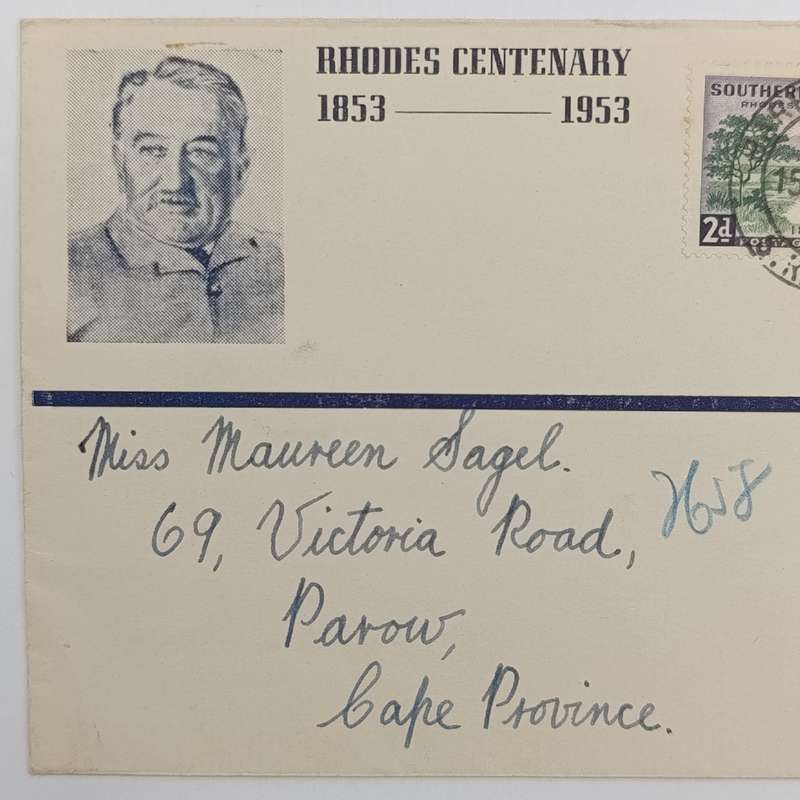 RHODES CENTENARY
1853 — 1953
SOUTHER
RHODES
15
2d
Miss Maureen Sagel.
69, Victoria Road,
Parow,
Cape Province.